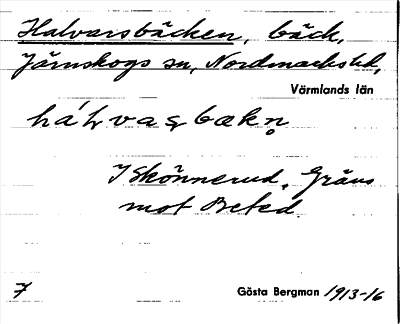 Halvarsbäcken, bäck,
Järnskogs sn, Nordmarks hd,
Värmlands län
I Skönnerud. Gräns
mot Beted.
7 Gösta Bergman 1913-16